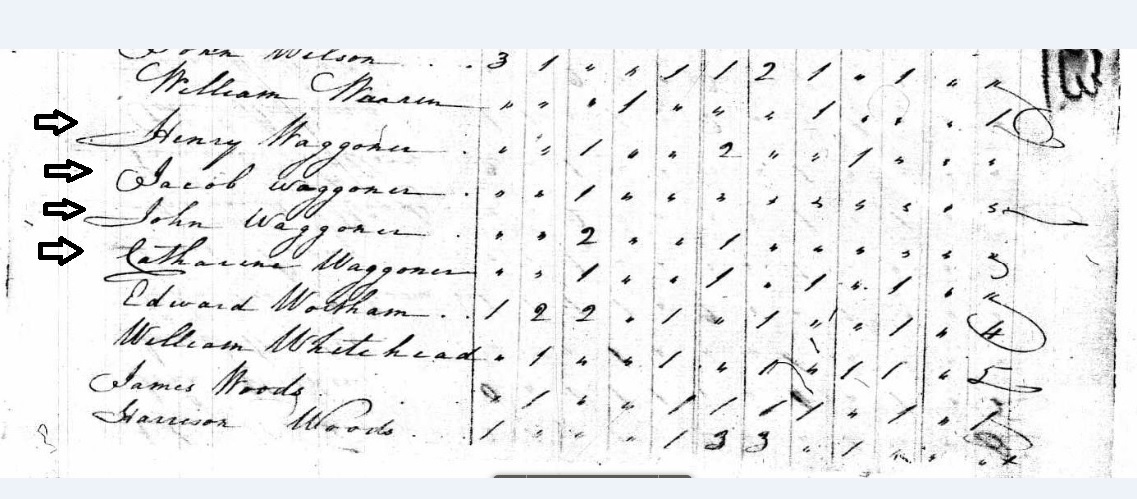 John Wilson . . 3 1 " " 1 1 2 1 " 1 " "
William Warren " " " 1 " " " 1 " " " 1
Henry Waggoner . " " 1 " " 2 " " 1 " " "
Jacob Waggoner . " " 1 " " " " " " " " "
John Waggoner . " " 2 " " 1 " " " " " "
Catharine Waggoner " " 1 " " 1 " 1 " 1 " "
Edward Wortham . . 1 2 2 " 1 " 1 " " 1 " 4
William Whitehead " 1 " " 1 " 1 " 1 1 "
James Woods 1 " " 1 1 1 1 " 1 " 1
Harrison Woods . . 1 " " " 1 3 3 " 1 " "